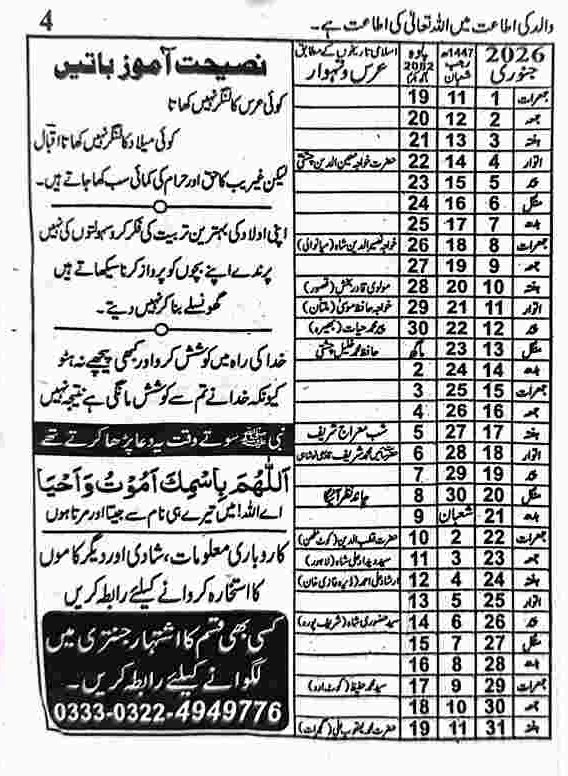 والد کی اطاعت میں اللہ تعالیٰ کی اطاعت ہے۔
4
2026 جنوری
1447ھ رجب شعبان
2082
اسلامی تاریخوں کے مطابق
عرس و تہوار
جمعرات 1 11 19
جمعہ 2 12 20
ہفتہ 3 13 21
اتوار 4 14 22 حضرت خواجہ معین الدین چشتی
پیر 5 15 23
منگل 6 16 24
بدھ 7 17 25
جمعرات 8 18 26 خواجہ نصیر الدین شاہ (میانوالی)
جمعہ 9 19 27
ہفتہ 10 20 28 مولوی قادر بخش (قصور)
اتوار 11 21 29 خواجہ حافظ موسیٰ (ملتان)
پیر 12 22 30 پیر محمد حیات (بھیرہ)
منگل 13 23 ماگھ حافظ محمد خلیل چشتی
بدھ 14 24 2
جمعرات 15 25 3
جمعہ 16 26 4
ہفتہ 17 27 5 شب معراج شریف
اتوار 18 28 6
پیر 19 29 7
منگل 20 30 8 چاند نظر آئیگا
بدھ 21 شعبان 9
جمعرات 22 2 10 حضرت قطب الدین (کوٹ مٹھن)
جمعہ 23 3 11 سید دیدار علی شاہ (لاہور)
ہفتہ 24 4 12 ارشاد علی احمد (ڈیرہ غازی خان)
اتوار 25 5 13
پیر 26 6 14 سید منصوری شاہ (شریف پورہ)
منگل 27 7 15
بدھ 28 8 16
جمعرات 29 9 17 سید محمد حفیظ (کوٹ ادو)
جمعہ 30 10 18
ہفتہ 31 11 19 حضرت محمد یعقوب علی (گجرات)
نصیحت آموز باتیں
کوئی عرس کا لنگر نہیں کھاتا
کوئی میلاد کا لنگر نہیں کھاتا اقبال
لیکن غریب کا حق اور حرام کی کمائی سب کھا جاتے ہیں۔
اپنی اولاد کی بہترین تربیت کی فکر کرو سہولتوں کی نہیں
پرندے اپنے بچوں کو پرواز کرنا سیکھاتے ہیں
گھونسلے بنا کر نہیں دیتے۔
خدا کی راہ میں کوشش کرو اور کبھی پیچھے نہ ہٹو
کیونکہ خدا نے تم سے کوشش مانگی ہے نتیجہ نہیں
نبی ﷺ سوتے وقت یہ دعا پڑھا کرتے تھے
اَللّٰهُمَّ بِاسْمِكَ اَمُوْتُ وَاَحْيَا
اے اللہ! میں تیرے ہی نام سے جیتا اور مرتا ہوں
کاروباری معلومات، شادی اور دیگر کاموں
کا استخارہ کروانے کیلئے رابطہ کریں
کسی بھی قسم کا اشتہار جنتری میں
لگوانے کیلئے رابطہ کریں۔
0333-0322-4949776